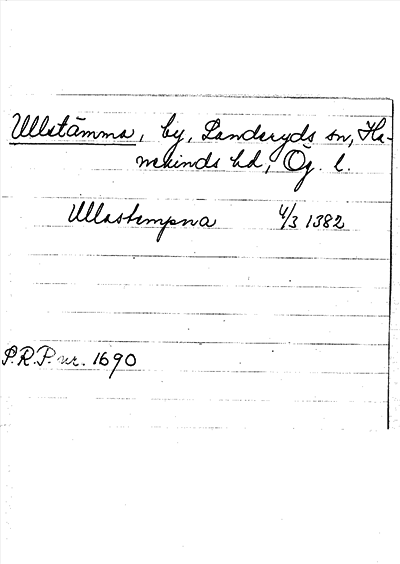 Ullstämma, by, Landeryds sn, Ha-
nekinds hd, Ög. l.
Ullastempna 4/3 1382
P.R.P. nr. 1690